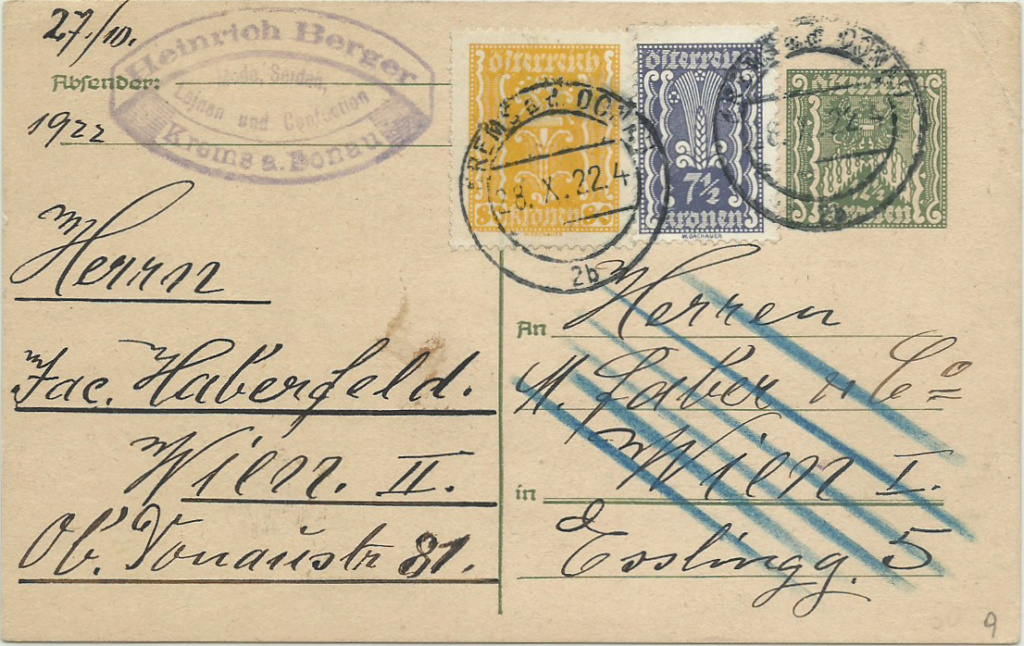 27./10.
Absender:
1922
Heinrich Berger
Seiden,
und Confection
Krems a. Donau
Österreich
Kronen
Österreich
7½
Kronen
W. DACHAUER
Kronen
KREMS a. d. DONAU
28. X. 22. 4
2b
Herrn
Jac. Haberfeld.
Wien. II.
Ob. Donaustr 81.
An Herren
M. Faber & Cº
in Wien I.
Esslingg. 5
9